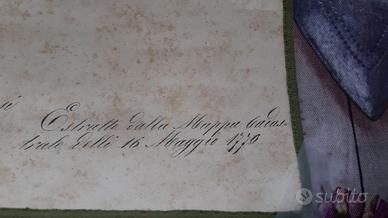 Estratto dalla Mappa Cadas-
trale delli 16 Maggio 1776
subito